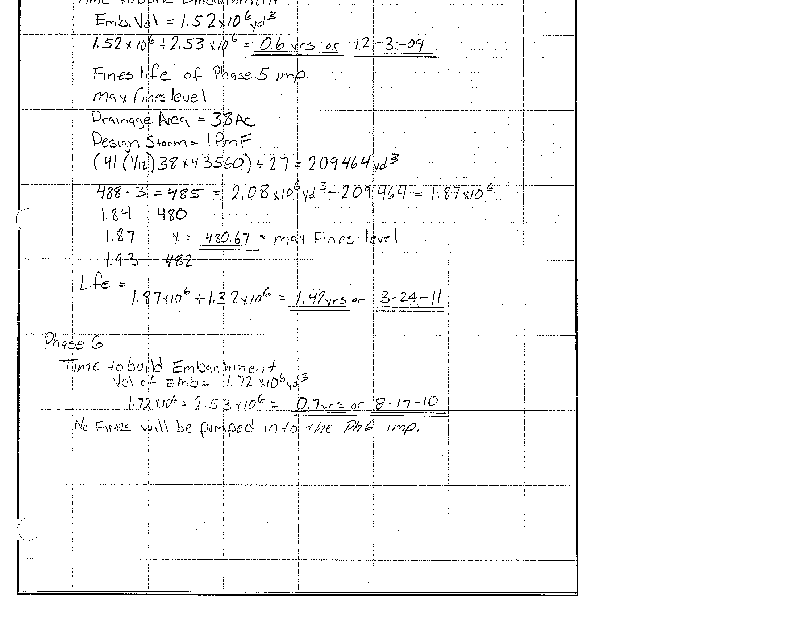 Time to build Embankment
Emb. Vol = 1.52x10⁶ yd³
1.52 x10⁶ ÷ 2.53 x10⁶ = 0.6 yrs or 12-3-09
Fines life of Phase 5 imp.
max fines level
Drainage Area = 38 Ac
Design Storm = 1 PmF
(41 (1/12) 38 x 43560) ÷ 27 = 209464 yd³
488 - 3 = 485 = 2.08x10⁶ yd³ - 209464 = 1.87x10⁶
1.84 480
1.87 x = 480.67 = max Fines level
1.93 482
Life =
1.87x10⁶ ÷ 1.32x10⁶ = 1.42 yrs or 3-24-11
Phase 6
Time to build Embankment
Vol of Emb = 1.72 x10⁶ yd³
1.72x10⁶ ÷ 2.53x10⁶ = 0.7 yrs or 8-17-10
No Fines will be pumped into the Ph6 imp.